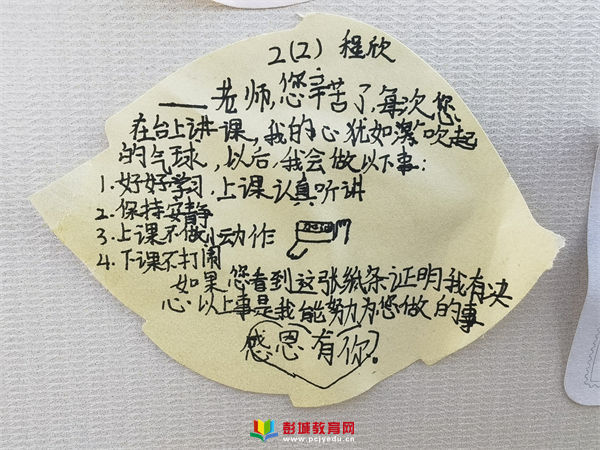 2(2) 程欣
——老师,您辛苦了,每次您
在台上讲课,我的心犹如漸吹起
的气球,以后,我会做以下事:
1.好好学习,上课认真听讲
2.保持安静
3.上课不做小动作
4.下课不打闹
如果您看到这张纸条证明我有决
心.以上事是我能努力为您做的事
感恩有你!
彭城教育网
www.pcjyedu.cn